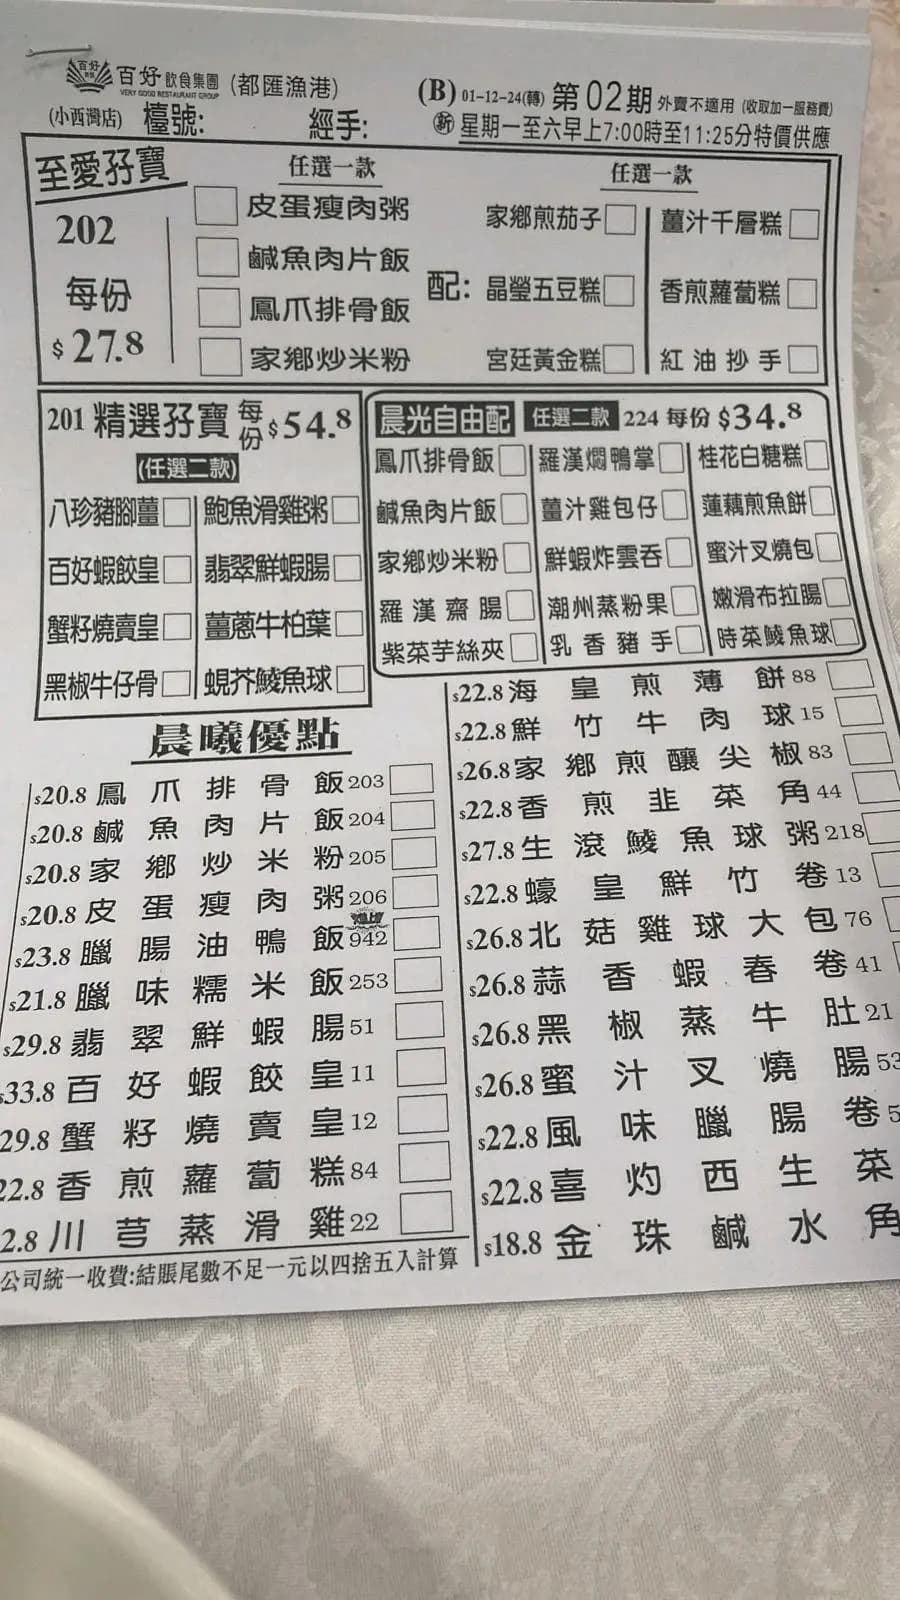 百好 飲食集團 (都匯漁港)
VERY GOOD RESTAURANT GROUP
(B) 01-12-24(轉) 第02期 外賣不適用 (收取加一服務費)
(小西灣店) 檯號: 經手:
新 星期一至六早上7:00時至11:25分特價供應
至愛孖寶
202
每份
$27.8
任選一款
皮蛋瘦肉粥
鹹魚肉片飯
鳳爪排骨飯
家鄉炒米粉
配:
任選一款
家鄉煎茄子 薑汁千層糕
晶瑩五豆糕 香煎蘿蔔糕
宮廷黃金糕 紅油抄手
201 精選孖寶 每份 $54.8
(任選二款)
八珍豬腳薑 鮑魚滑雞粥
百好蝦餃皇 翡翠鮮蝦腸
蟹籽燒賣皇 薑蔥牛柏葉
黑椒牛仔骨 蜆芥鯪魚球
晨光自由配 任選二款 224 每份 $34.8
鳳爪排骨飯 羅漢燜鴨掌 桂花白糖糕
鹹魚肉片飯 薑汁雞包仔 蓮藕煎魚餅
家鄉炒米粉 鮮蝦炸雲吞 蜜汁叉燒包
羅漢齋腸 潮州蒸粉果 嫩滑布拉腸
紫菜芋絲夾 乳香豬手 時菜鯪魚球
晨曦優點
$20.8 鳳爪排骨飯 203
$20.8 鹹魚肉片飯 204
$20.8 家鄉炒米粉 205
$20.8 皮蛋瘦肉粥 206
$23.8 臘腸油鴨飯 942
$21.8 臘味糯米飯 253
$29.8 翡翠鮮蝦腸 51
$33.8 百好蝦餃皇 11
29.8 蟹籽燒賣皇 12
22.8 香煎蘿蔔糕 84
2.8 川芎蒸滑雞 22
$22.8 海皇煎薄餅 88
$22.8 鮮竹牛肉球 15
$26.8 家鄉煎釀尖椒 83
$22.8 香煎韭菜角 44
$27.8 生滾鯪魚球粥 218
$22.8 蠔皇鮮竹卷 13
$26.8 北菇雞球大包 76
$26.8 蒜香蝦春卷 41
$26.8 黑椒蒸牛肚 21
$26.8 蜜汁叉燒腸 53
$22.8 風味臘腸卷 5
$22.8 喜灼西生菜
$18.8 金珠鹹水角
公司統一收費:結賬尾數不足一元以四捨五入計算